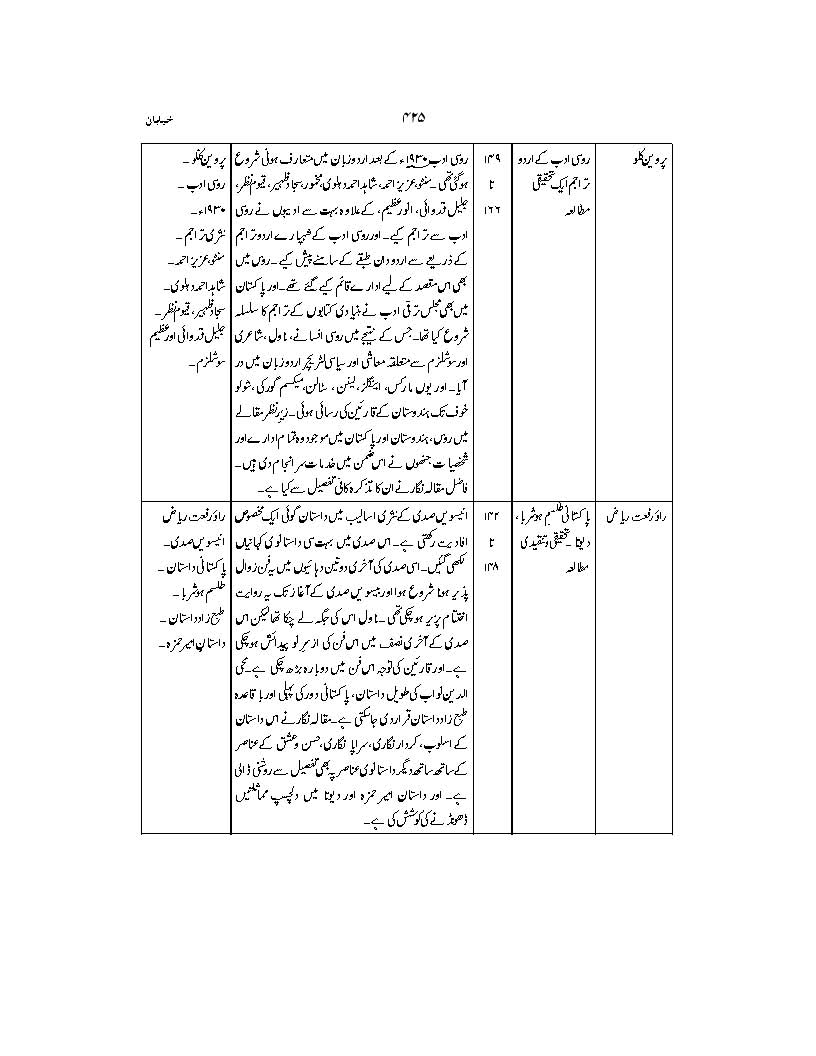 خیابان
۴۲۵
پروین کلو
روسی ادب کے اردو
تراجم ایک تحقیقی
مطالعہ
۱۴۹
تا
۱۶۶
روسی ادب ۱۹۳۰ء کے بعد اردو زبان میں متعارف ہونی شروع
ہو گئی تھی۔ منٹو، عزیز احمد، شاہد احمد دہلوی، مخمور، سجاد ظہیر، قیوم نظر،
جلیل قدوائی، انور عظیم، کے علاوہ بہت سے ادیبوں نے روسی
ادب سے تراجم کیے۔ اور روسی ادب کے شہپارے اردو تراجم
کے ذریعے سے اردو دان طبقے کے سامنے پیش کیے۔ روس میں
بھی اس مقصد کے لیے ادارے قائم کیے گئے تھے۔ اور پاکستان
میں بھی مجلس ترقی ادب نے بنیادی کتابوں کے تراجم کا سلسلہ
شروع کیا تھا۔ جس کے نتیجے میں روسی افسانے، ناول، شاعری
اور سوشلزم سے متعلقہ معاشی اور سیاسی لٹریچر اردو زبان میں در
آیا۔ اور یوں مارکس، اینگلز، لینن، سٹالن، میکسم گورکی، شولو
خوف تک ہندوستان کے قارئین کی رسائی ہوئی۔ زیرِ نظر مقالے
میں روس، ہندوستان اور پاکستان میں موجود وہ تمام ادارے اور
شخصیات جنھوں نے اس ضمن میں خدمات سرانجام دی ہیں۔
فاضل مقالہ نگار نے ان کا تذکرہ کافی تفصیل سے کیا ہے۔
پروین کلو۔
روسی ادب۔
۱۹۳۰ء۔
نثری تراجم۔
منٹو، عزیز احمد۔
شاہد احمد دہلوی۔
سجاد ظہیر، قیوم نظر۔
جلیل قدوائی اور عظیم
سوشلزم۔
راؤ رفعت ریاض
پاکستانی طلسم ہوشربا،
دیوتا۔ تحقیقی و تنقیدی
مطالعہ
۱۴۲
تا
۱۴۸
انیسویں صدی کے نثری اسالیب میں داستان گوئی ایک مخصوص
افادیت رکھتی ہے۔ اس صدی میں بہت سی داستانوی کہانیاں
لکھی گئیں۔ اسی صدی کی آخری دو تین دہائیوں میں یہ فن زوال
پذیر ہونا شروع ہوا اور بیسویں صدی کے آغاز تک یہ روایت
اختتام پزیر ہو چکی تھی۔ ناول اس کی جگہ لے چکا تھا لیکن اس
صدی کے آخری نصف میں اس فن کی از سرِ نو پیدائش ہو چکی
ہے۔ اور قارئین کی توجہ اس فن میں دوبارہ بڑھ چکی ہے۔ محی
الدین نواب کی طویل داستان، پاکستانی دور کی پہلی اور باقاعدہ
طبع زاد داستان قرار دی جا سکتی ہے۔ مقالہ نگار نے اس داستان
کے اسلوب، کردار نگاری، سراپا نگاری، حسن و عشق کے عناصر
کے ساتھ ساتھ دیگر داستانوی عناصر پہ بھی تفصیل سے روشنی ڈالی
ہے۔ اور داستان امیر حمزہ اور دیوتا میں دلچسپ مماثلتیں
ڈھونڈنے کی کوشش کی ہے۔
راؤ رفعت ریاض
انیسویں صدی۔
پاکستانی داستان۔
طلسم ہوشربا۔
طبع زاد داستان۔
داستانِ امیر حمزہ۔